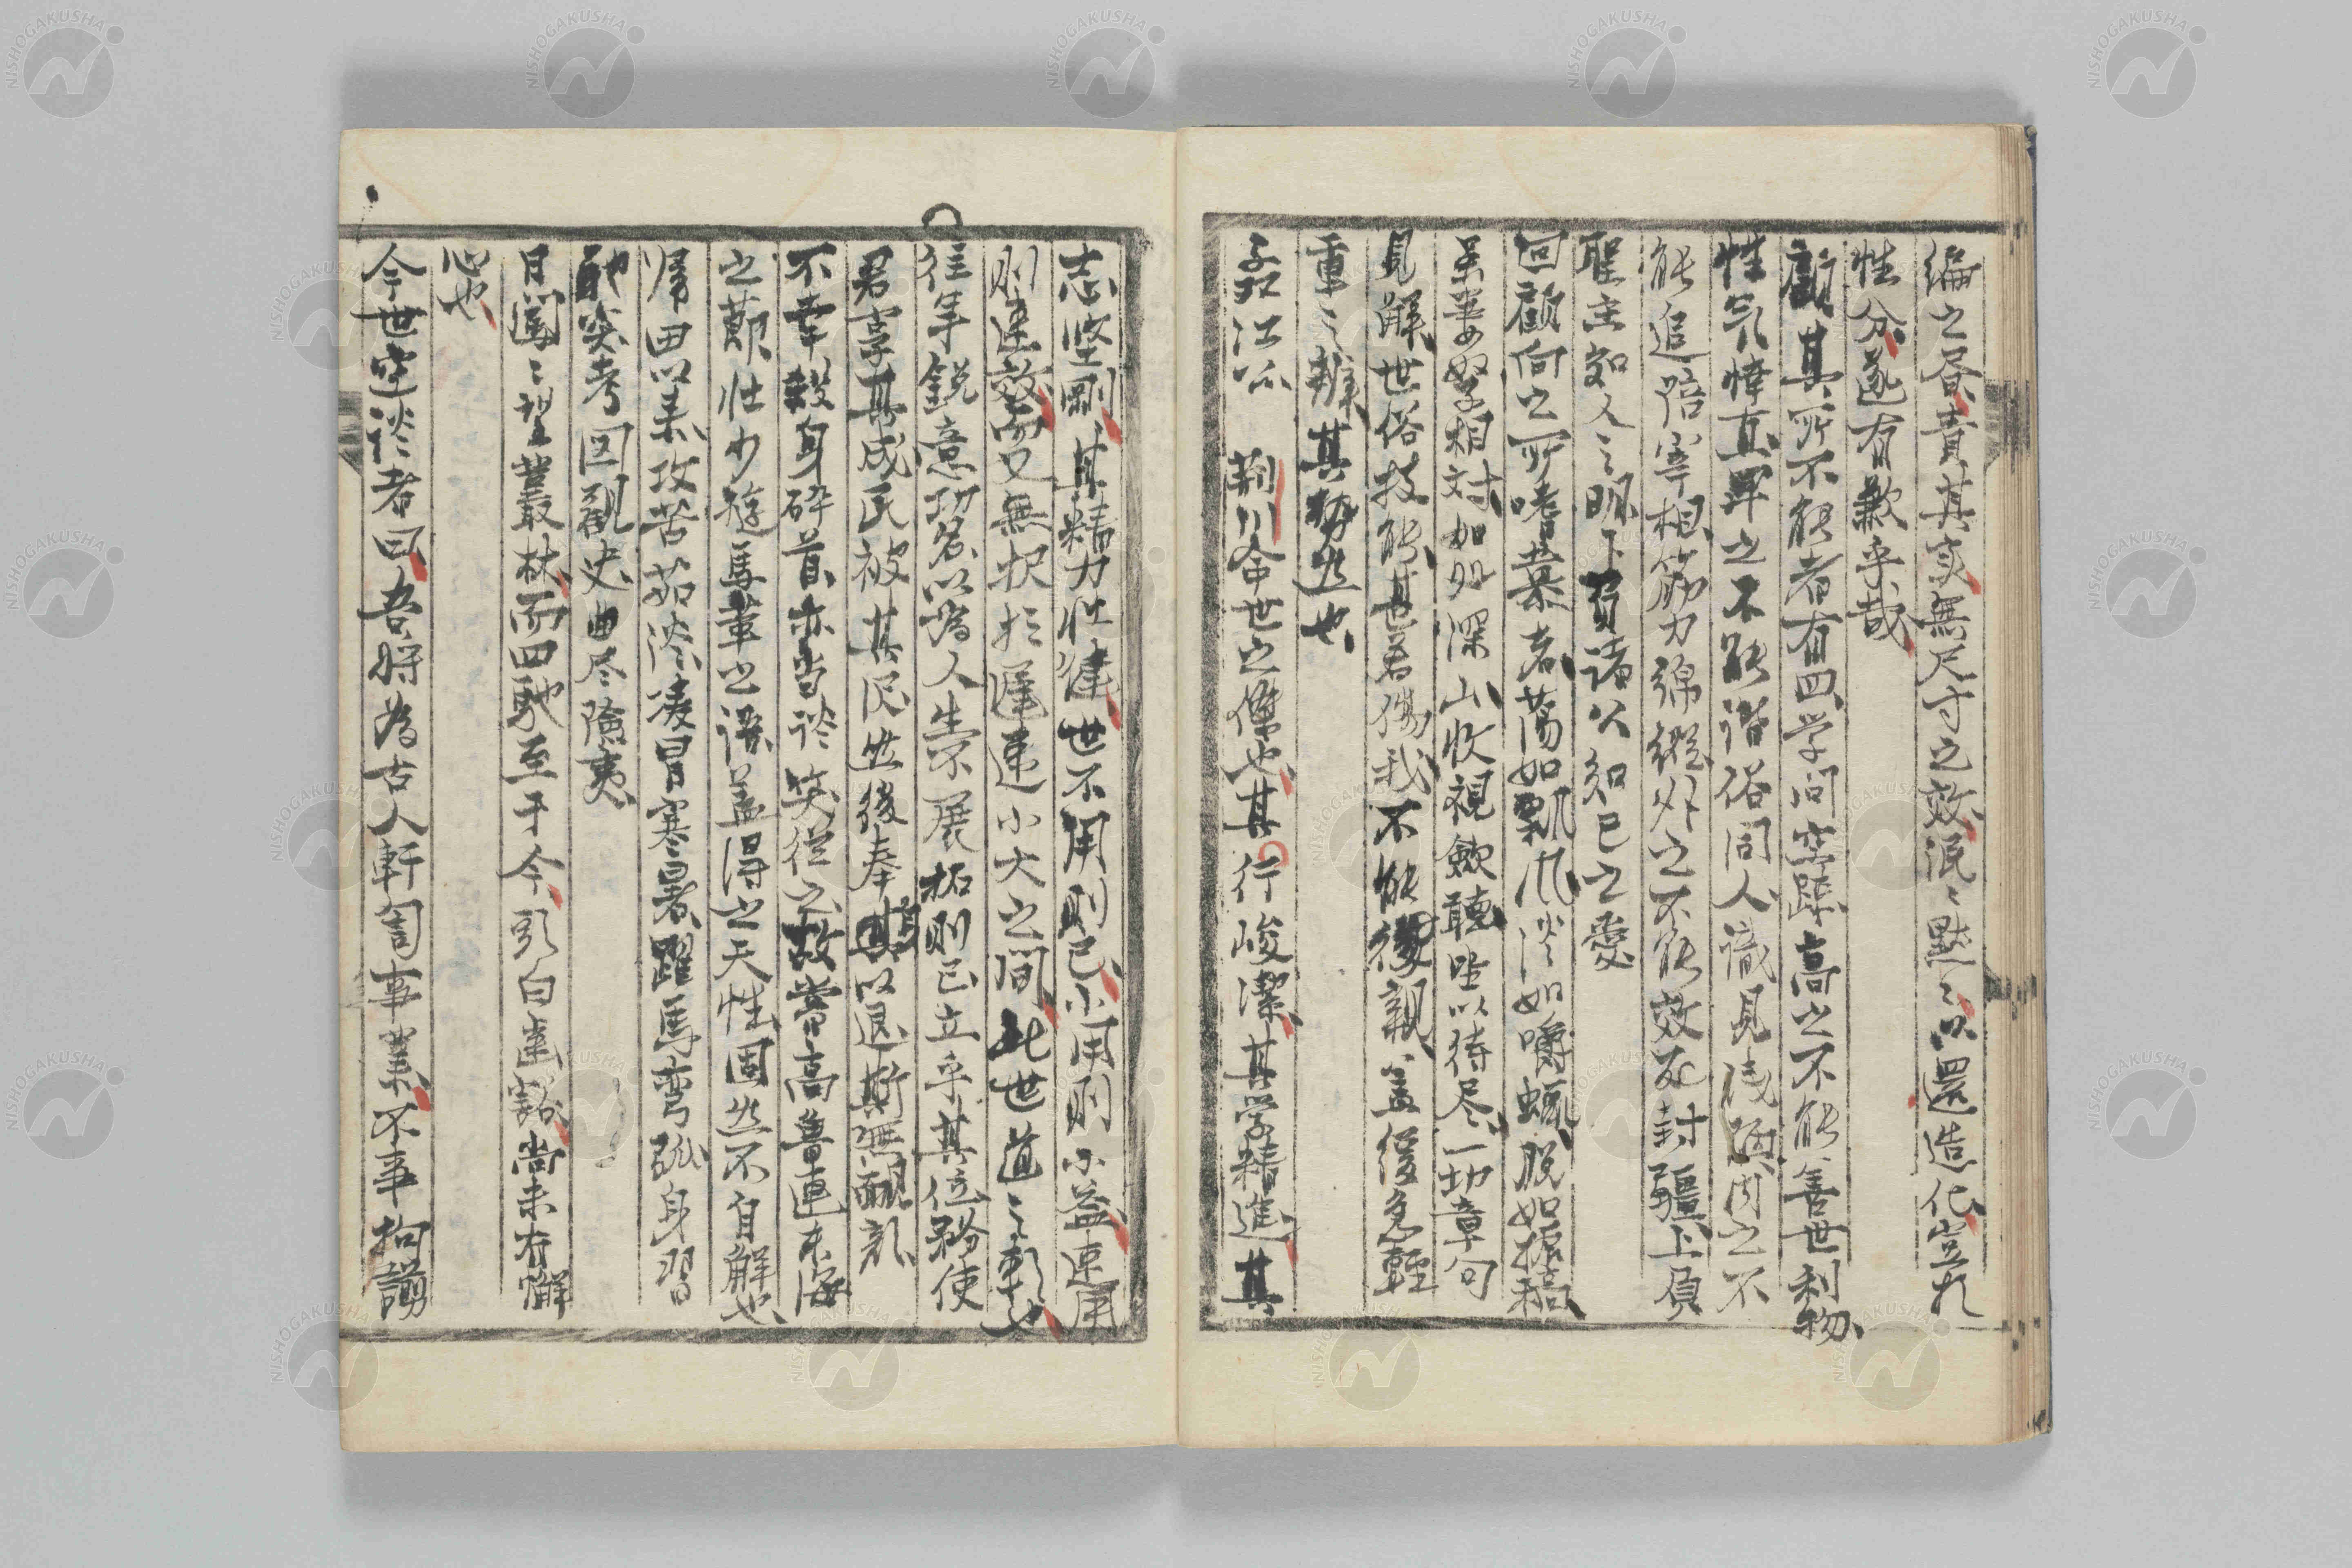 編之昼責其実無尺寸之效泯〻黙〻以還造化豈凡
性分遂有歉乎哉
顧其所不能者有四学问空踈高之不能善世利物
性氣悻直罪之不能谐俗同人識見浅陋内之不
能追陪宰相筋力綿縱外之不能效死封疆上負
聖主知人之明下負諸公知己之愛
回顧向之所嗜慕者蕩如飄風淡如嚼蠟脱如振稿
妻孥相対如処深山收視歛聽坐以待尽一切章句
見解世俗技能甚者傷我不能復親盖緩急輕
重之辨其勢然也
孟江公 荊川命世之傑也其行峻潔其学精進其
志坚剛其精力壮健世不用則已小用則小益速用
則速效而又無択於遲速小大之間此世道之幸也
往年鋭意功名以為人生不展拓則已立乎其位務使
君享其成民被其沢然後奉其以退斯無靦顔
不幸殺身碎首亦当談笑從之故嘗高魯連東海
之蹈壮少游馬革之語盖得之天性固然不自解也
帰田以来攻苦茹淡凌冒寒暑躍馬弯弧身習
馳突考図観史曲尽險夷
月圓〻望叢林而四馳至于今头白齒豁尚未有懈
心也
今世空談者曰吾将為古人軒冕事業不事拘謭